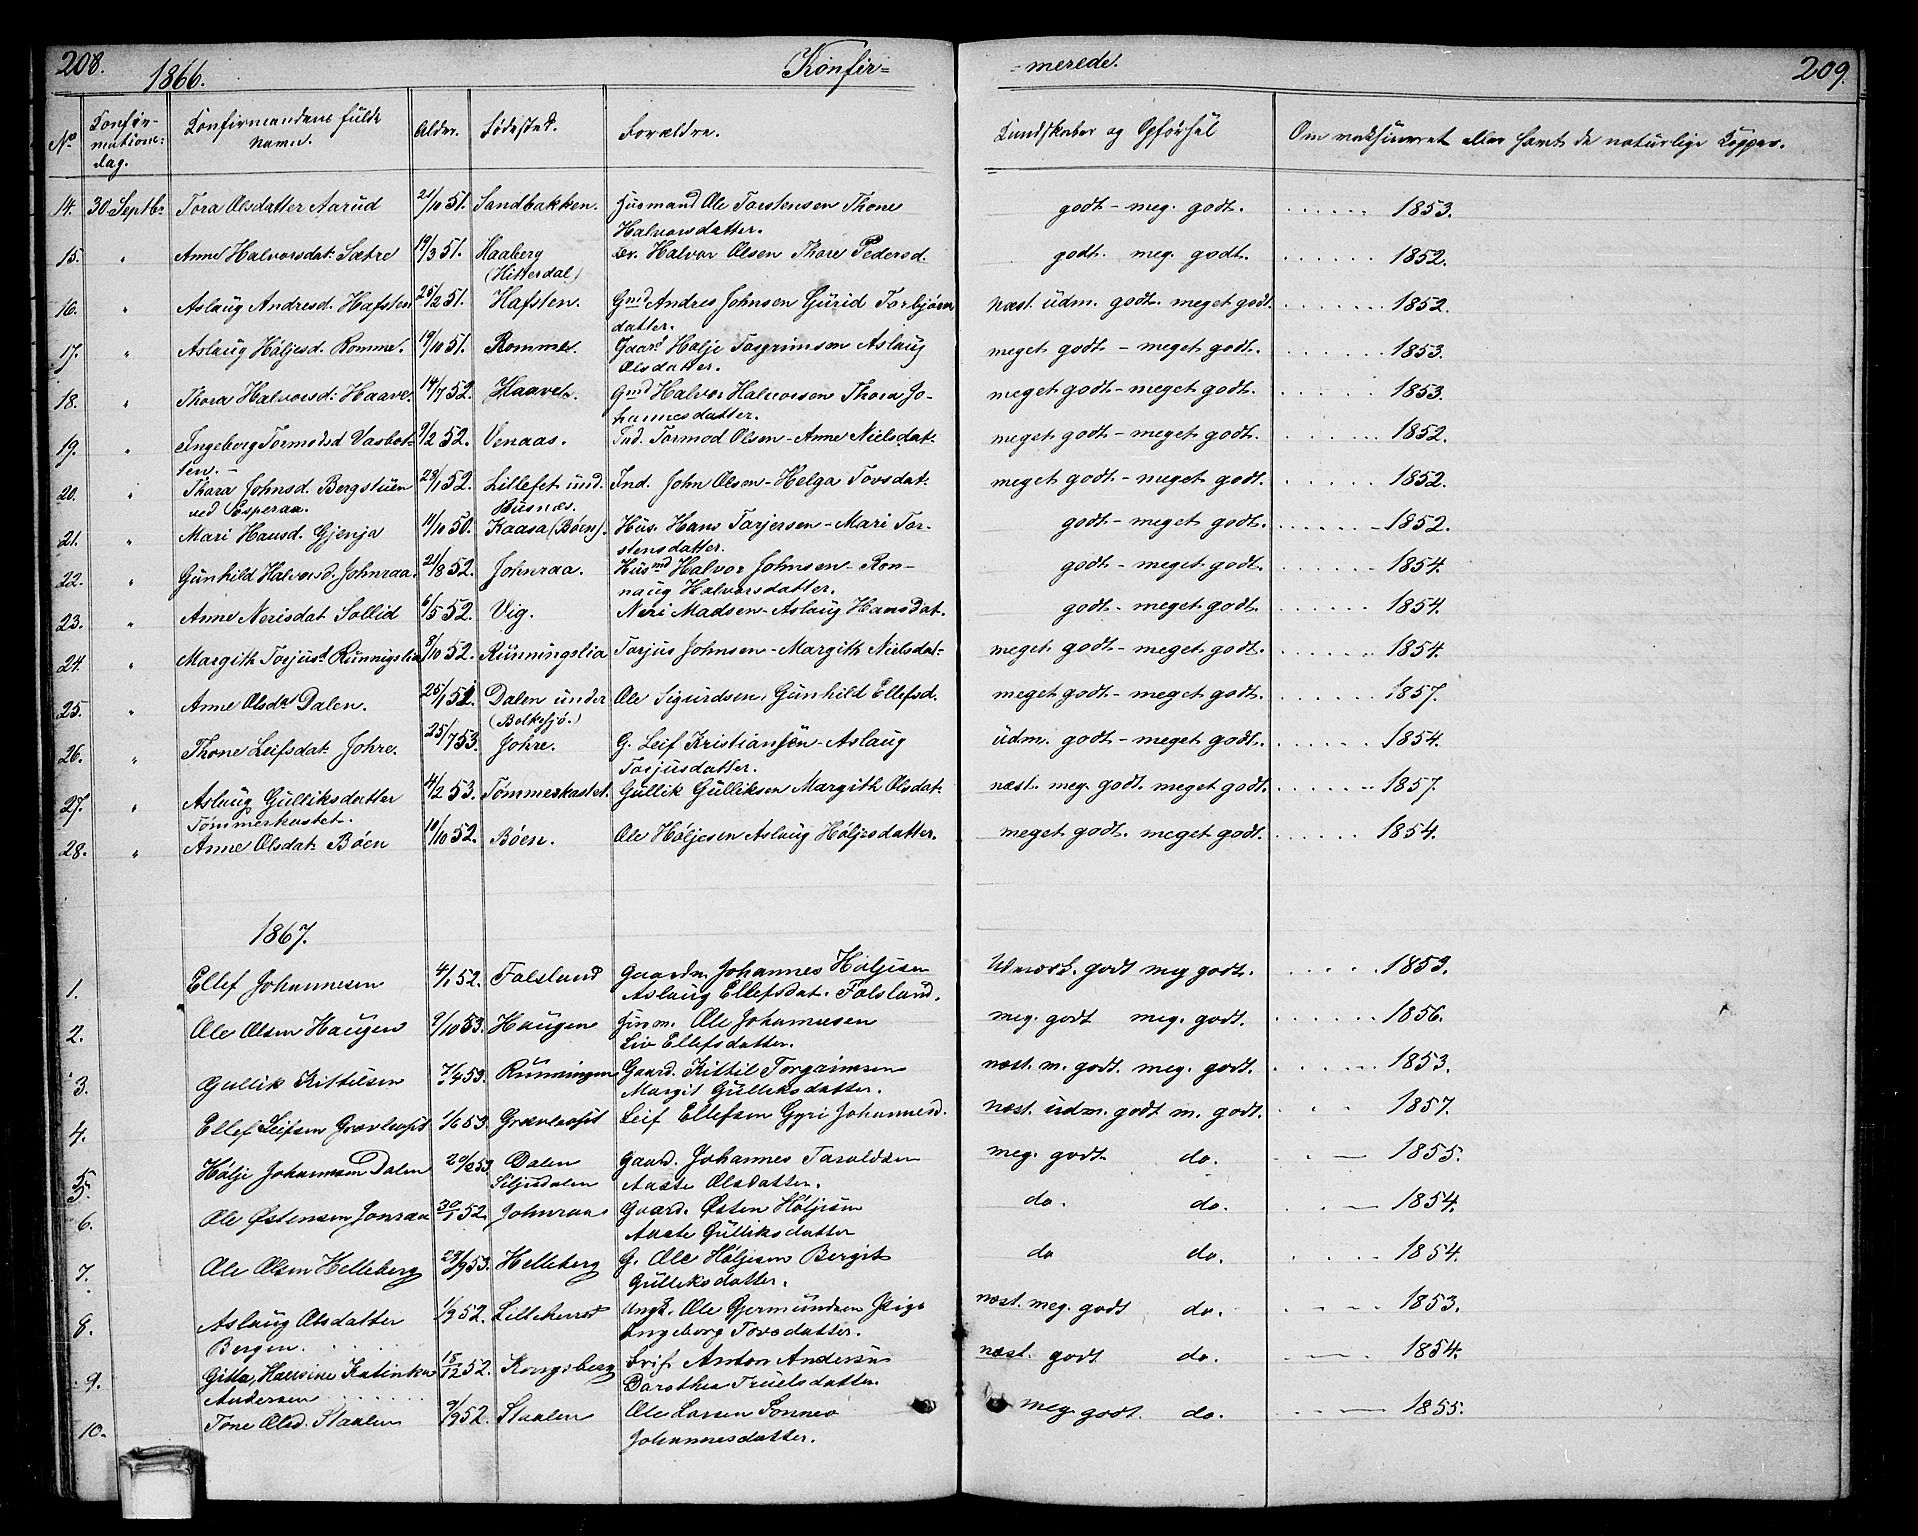 208. 1866. Konfir= =merede. 209.
No Konfirmationsdag. Konfirmandens fulde Navn. Alder. Fødested. Forældre. Kundskaber og Opførsel Om vaksineret eller havt de naturlige Kopper.
14. 30 Septbr Tora Olsdatter Aarud 21/10 51. Sandbakken. Husmand Ole Torstensen Thone godt - meg. godt. ...... 1853.
Halvorsdatter.
15. " Anne Halvorsdat. Sætre 19/3 51. Haaberg Halvor Olsen Thore Pedersd. godt. meg. godt. ...... 1852.
(Hitterdal)
16. " Aslaug Andresd. Hafsten 25/2 51. Hafsten. Gmd Andres Johnsen Gurid Torbjørn næst. udm. godt. meget godt. ...... 1852.
datter.
17. " Aslaug Høljesd. Romme. 19/10 51. Rommes. Gaard Holje Torgrimsen Aslaug meget godt - meget godt. ...... 1853.
Olsdatter.
18. " Thora Halvorsd: Haave. 14/7 52. Haavet. Gmd Halvor Halvorsen Thora Jo- meget godt - meget godt. ...... 1853.
hannesdatter.
19. " Ingeborg Tormodsd Vasbot- 9/2 52. Venaas. Ind. Tormod Olsen - Anne Nielsdat. meget godt - meget godt. ...... 1852.
ten. -
20. " Thara Johnsd. Bergstuen 23/1 52. Lillefet und. Ind. John Olsen - Helga Tovsdat. meget godt - meget godt. ...... 1852.
ved Esperaa. Busnæs.
21. " Mari Hansd. Gjenja 11/10 50. Kaasa (Bøen). Hus. Hans Torjersen - Mari Tor- godt - meget godt. ...... 1852.
stensdatter.
22. " Gunhild Halvorsd. Johnraa. 21/8 52. Johnraa. Husmd Halvor Johnsen - Ron- godt - meget godt. ...... 1854.
naug Halvorsdatter.
23. " Anne Nerisdat Sollid 6/5 52. Vig. Neri Madsen - Aslaug Hansdat. godt - meget godt. ...... 1854.
24. " Margith Torjusd. Runnigslia 8/10 52. Runningslia Torjus Johnsen - Margith Nielsdat- meget godt - meget godt. ...... 1854.
25. " Anne Olsdr Dalen. 25/1 52. Dalen under Ole Sigurdsen, Gunhild Ellefsd. meget godt - meget godt. ...... 1857.
(Bolkesjø.)
26. " Thone Leifsdat. Johre. 25/7 53. Johre. G. Leif Kristiansen - Aslaug udm. godt - meget godt. ...... 1854.
Torjusdatter.
27. " Aslaug Gulliksdatter 4/2 53. Tømmerkastet. Gullik Gulliksen Margith Olsdat. næst. meg. godt. meget godt. ...... 1857.
Tømmerkastet.
28. " Anne Olsdat. Bøen 10/10 52. Bøen. Ole Høljesen Aslaug Høljesdatter. meget godt. meget godt. ...... 1854.
1867.
1. Ellef Johannesen 4/1 52. Falsland Gaardm. Johannes Høljesen Udmærk. godt meg godt. ..... 1853.
Aslaug Ellefsdat. Falsland.
2. Ole Olsen Haugen 9/10 53. Haugen Husm. Ole Johannesen meg. godt meg. godt. ...... 1856.
Liv Ellefsdatter.
3. Gullik Kittilsen 7/4 53. Runningen Gaard. Kittil Torgrimsen næst. m. godt. meg. godt. ..... 1853.
Margit Gulleksdatter.
4. Ellef Leifsen Gravleopit 1/6 53. Gravleopit Leif Ellefsen Gyri Johannesd. næst. udm. godt m. godt. ... 1857.
5. Hølje Johannesen Dalen Dalen Gaard. Johannes Taraldsen meg. godt. do. .. — 1855.
Siljesdalen Aaste Olsdatter.
6. Ole Østensen Jonraa 30/1 52. Johnraa Gaard. Østen Høljesen do. do. 1854.
Aaste Gulliksdatter
7. Ole Olsen Helleberg 29/9 53. Helleberg G. Ole Høljesen Bergit do do. 1854.
Gulleksdatter.
8. Aslaug Olsdatter 1/9 52. Lilleherred Ungk. Ole Gjermundsen Pige næst. meg. godt do. 1853.
Bergen. Ingeborg Tovsdatter.
9. Gitta Hansine Katinka 18/12 52. Kongsberg Anton Andersen næst. godt do. 1854.
Andersen ....... Dorothea Truelsdatter.
10. Tone Olsd. Staalen 9/9 52. Staalen Ole Larsen Sonneo meg. godt. do. 1855.
Johannesdatter.